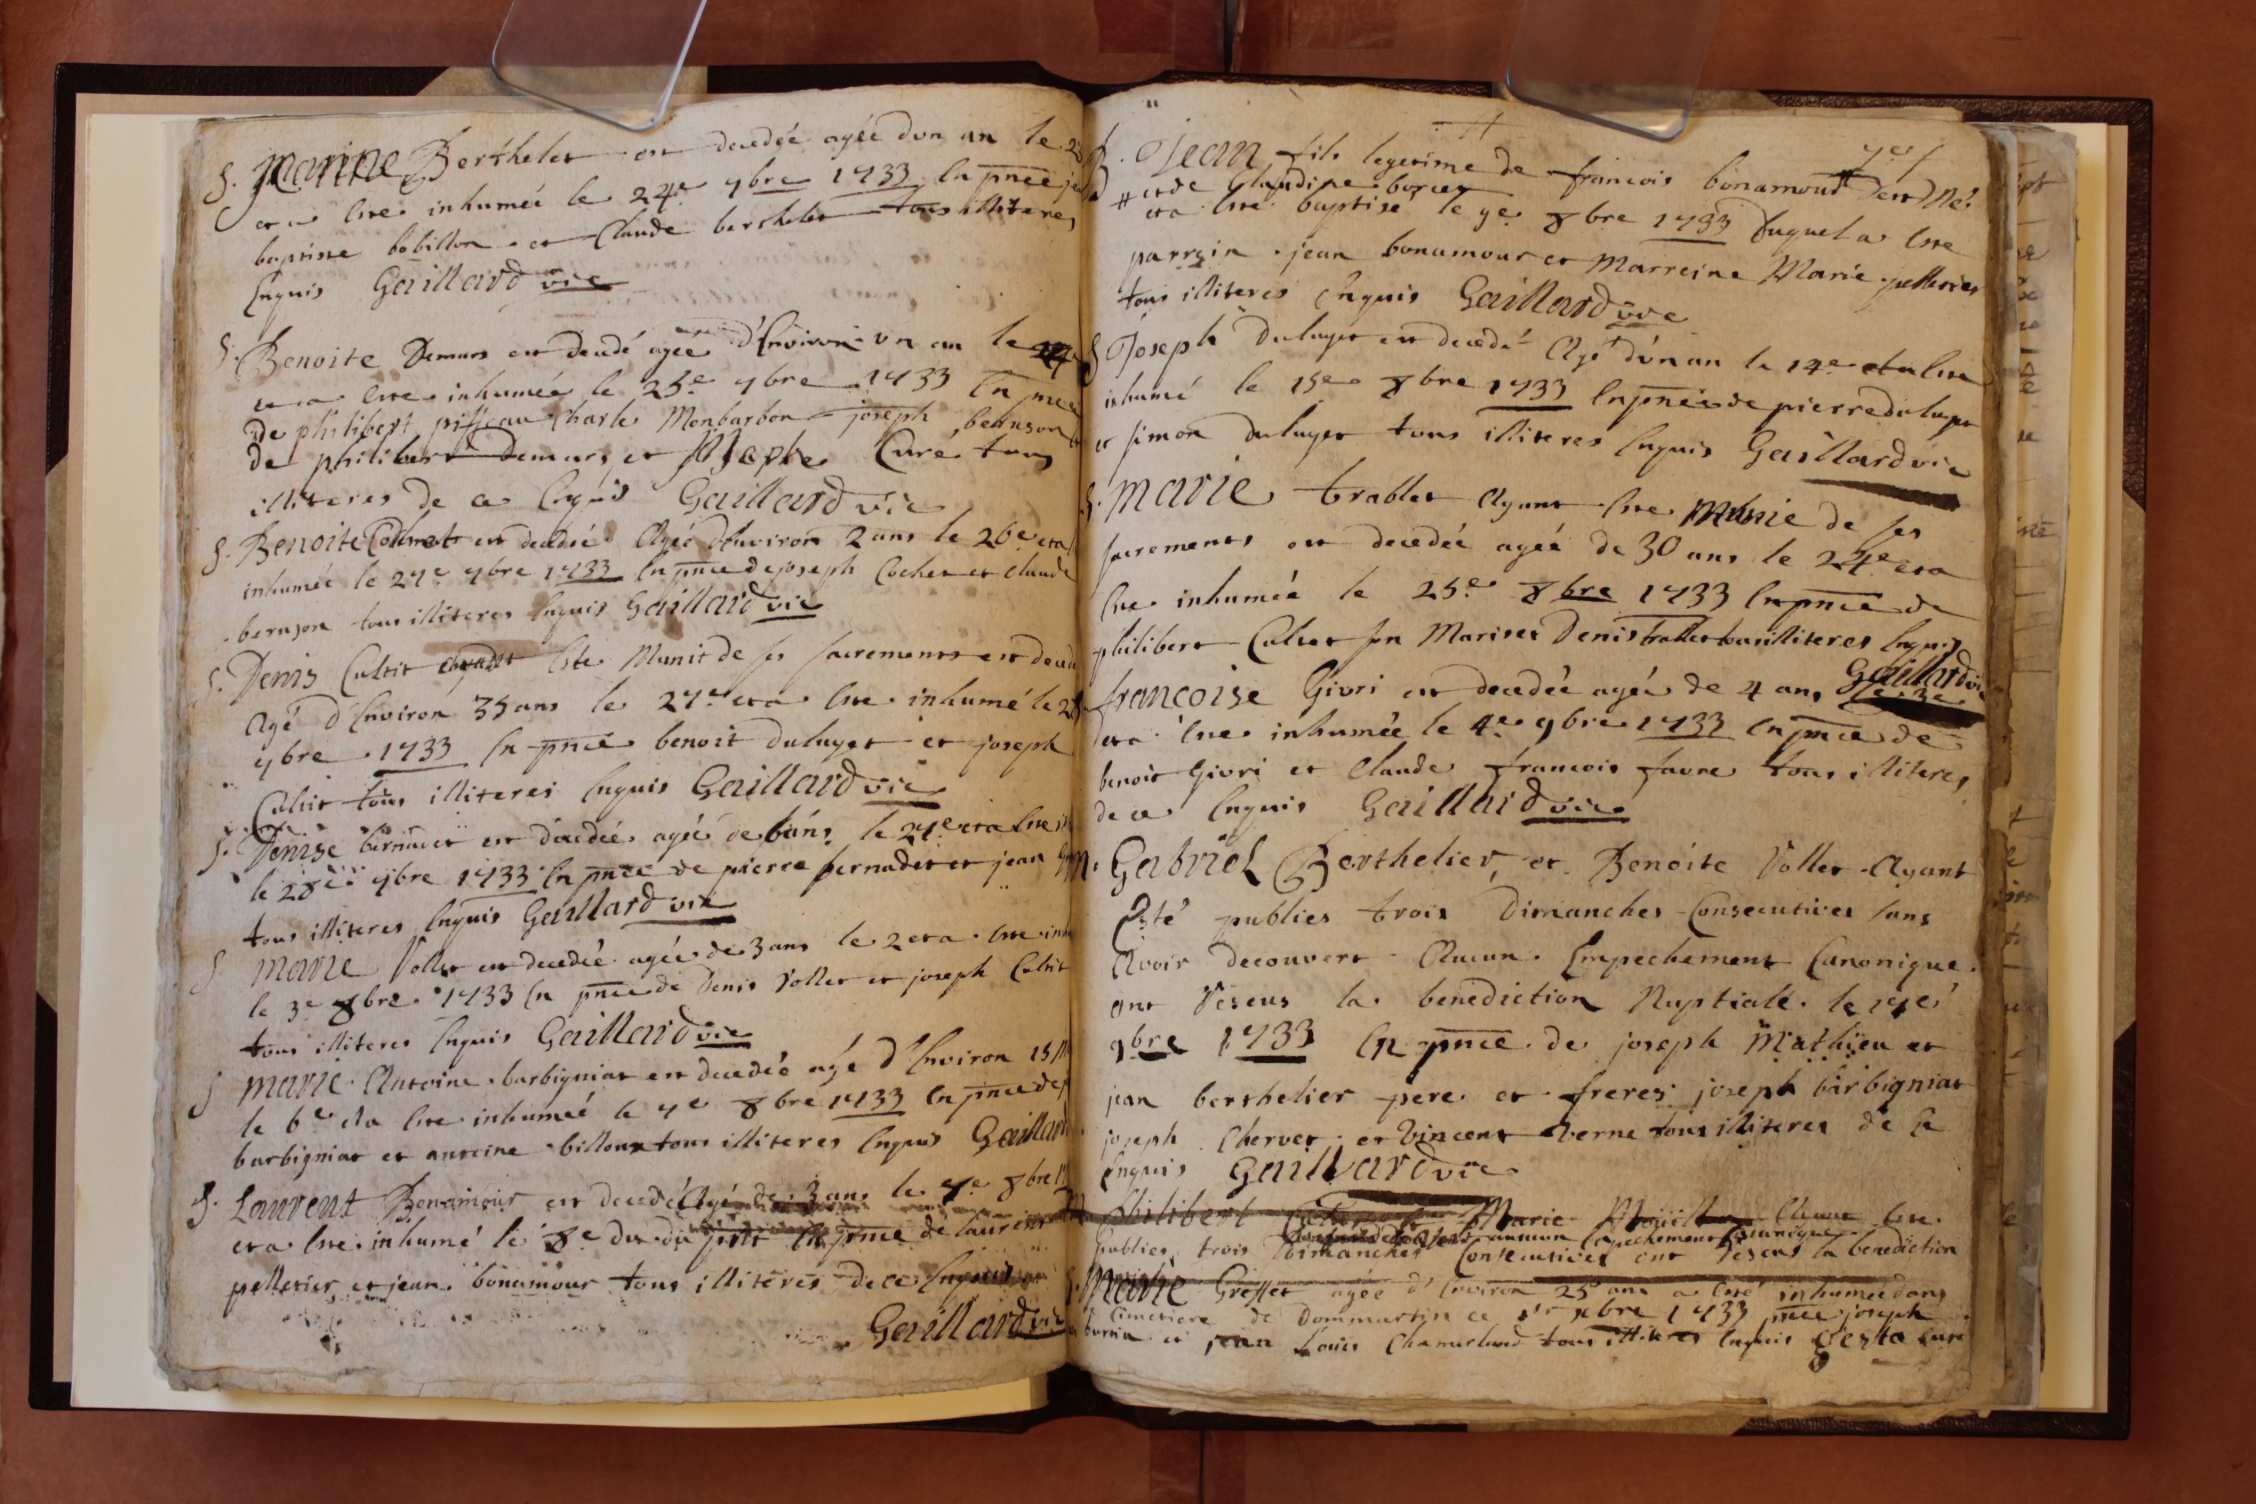 S. Marine Berthelet est decedée agée dun an le 23
et a Ete inhumée le 24e 7bre 1733 En pnce
baptiste bobillon et Claude berthelet tous illiteres
Enquis Gaillard vic
S. Benoite Demurs est decedé agée d'Environ un an le
et a Ete inhumée le 25e 7bre 1733 En pnce
de philibert Charle Monbarbon joseph
de philibert Demurs et Curé tous
illiteres de ce Enquis Gaillard vic
S. Benoite est decedée Agée d'Environ 2 ans le 26e et a
inhumée le 27e 7bre 1733 En pnce de joseph Cochet et Claude
tous illiteres Enquis Gaillard vic
S. Denis Cultit Ete Munit de ses sacrements est decedé
Agé d'Environ 35 ans le 27e et a Ete inhumé le 28
7bre 1733 En pnce benoit duluget et joseph
Cultit tous illiteres Enquis Gaillard vic
S. Denise bernadet est decedée agée de ans le 27e et a Ete
le 28e 7bre 1733 En pnce de pierre bernadet et jean
tous illiteres Enquis Gaillard vic
S Marie Vollet est decedée agée de 3 ans le 2 et a Ete inh
le 3e 8bre 1733 En pnce de Denis Vollet et joseph Cultit
tous illiteres Enquis Gaillard vic
S Marie Antoine barbigniat est decedée agé d'Environ 15
le 6e et a Ete inhumée le 7e 8bre 1733 En pnce de
barbigniat et antoine billoux tous illiteres Enquis Gaillard
S. Laurent Bonamour est decedé Agé de 3 ans le 7e 8bre
et a Ete inhumé le 8e du dit En pnce de laurent
pelletier et jean bonamour tous illiteres de ce Enquis
Gaillard vic
B. Jean fils legetime de francois bonamour est Né
# et de Claudine
et a Ete baptisé le 9e 8bre 1733 Duquel a Ete
parrain jean bonamour et Marreine Marie pelletier
tous illiteres Enquis Gaillard vic
S Joseph Duluget est decedé Agé d'un an le 14e et a Ete
inhumé le 15e 8bre 1733 En pnce de pierre duluget
et simon duluget tous illiteres Enquis Gaillard vic
S. Marie trablet Ayant Ete Munie de ses
sacrements est decedée agée de 30 ans le 24e et a
Ete inhumée le 25e 8bre 1733 En pnce de
philibert Cultet son Mari et Denis trablet tous illiteres Enquis
Gaillard vic
francoise Givri est decedée agée de 4 ans le 3e
et a Ete inhumée le 4e 9bre 1733 En pnce de
benoit Givri et Claude francois favre tous illiteres
de ce Enquis Gaillard vic
M. Gabriel Berthelier et Benoite Vollet Ayant
Eté publies trois Dimanches Consecutives sans
Avoir decouvert Aucun Empechement Canonique
ont Reseus la benediction Nuptiale le 17e
9bre 1733 En pnce de joseph Mathieu et
jean berthelier pere et freres joseph barbigniat
joseph Chervet et Vincent Verne tous illiteres de Ce
Enquis Gaillard vic
Philibert Marie Ete
aucun Empechement Canonique
publies trois Dimanches Consecutives ont Reseus la benediction
S. Marie Greffet agée d'Environ 25 ans a Eté inhumée dans
Cimetiere de Dommartin ce xbre 1733 pnce joseph
et jean Louis tous illiteres Enquis Curé